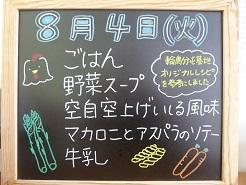 8月4日(火)
輪島分屯基地
オリジナルレシピ
を参考にしました
ごはん
野菜スープ
空自空上げいしる風味
マカロニとアスパラのソテー
牛乳